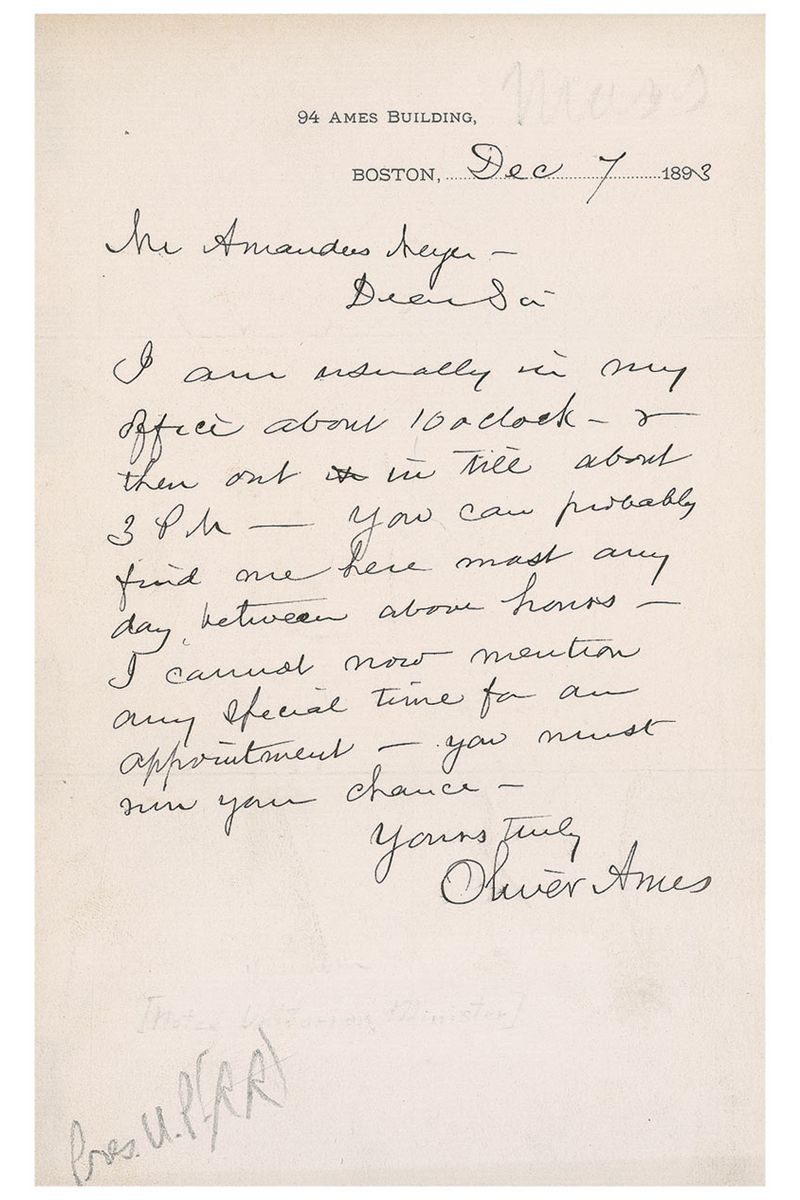 Mass
94 AMES BUILDING,
BOSTON, Dec 7 1893
Mr Amandus Meyer –
Dear Sir
I am usually in my
office about 10 oclock – &
then out & in till about
3 P M — You can probably
find me here most any
day between above hours –
I cannot now mention
any special time for an
appointment – you must
run your chance –
Yours truly
Oliver Ames
[Noted Unitarian Minister]
Pres. U.P. (RR)